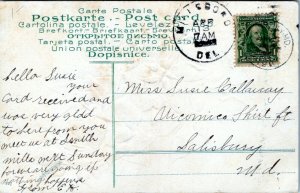 Carte Postale
Postkarte - Post card
Cartolina postale - Levelező-lap
Brefkort - Briefkaart
ОТКРЫТОЕ ПИСЬМО
Tarjeta postal - Carto postal
Union postale universelle
Dopisnice.
MILLSBORO
APR
7 AM
DEL.
hello Susie
Your
Card received and
was very glad
to hear from you
meet us at Zenith
mills next Sunday
from
Miss Susie Callaway
Wicomico Shirt ft
Salisbury
Md.